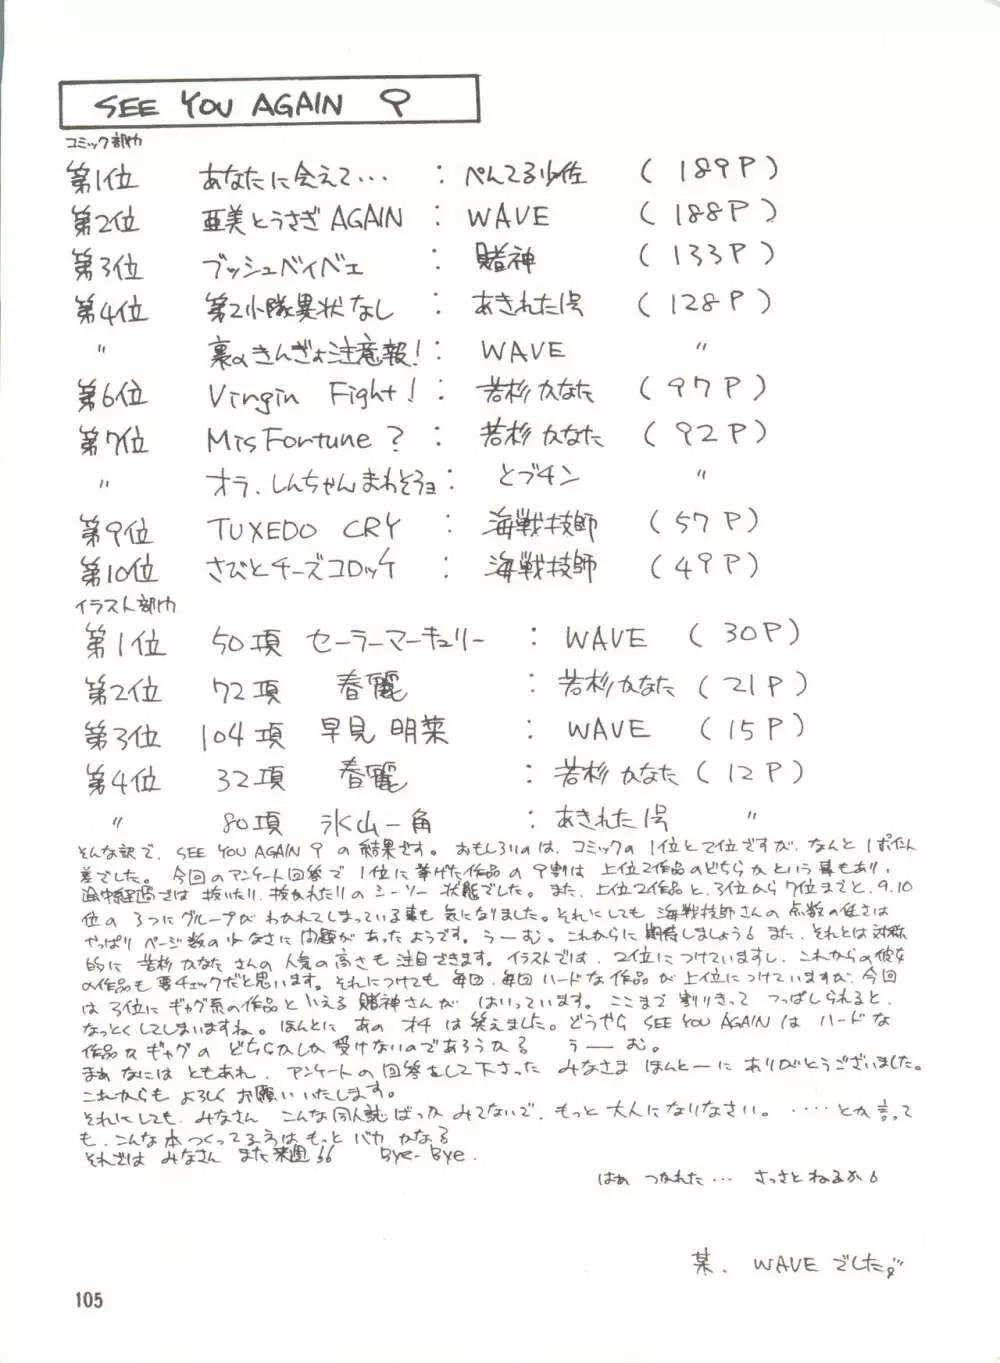 SEE YOU AGAIN 9
コミック部門
第1位 あなたに会えて・・・ : ぺんてる少佐 (189P)
第2位 亜美とうさぎAGAIN : WAVE (188P)
第3位 ブッシュベイベェ : 賭神 (133P)
第4位 第2小隊異状なし : あきれた1号 (128P)
〃 裏のきんぎょ注意報! : WAVE 〃
第6位 Virgin Fight! : 若杉かなた (97P)
第7位 MisFortune? : 若杉かなた (92P)
〃 オラ、しんちゃんまわぞうョ : とブチン 〃
第9位 TUXEDO CRY : 海戦技師 (57P)
第10位 さびとチーズコロッケ : 海戦技師 (49P)
イラスト部門
第1位 50項 セーラーマーキュリー : WAVE (30P)
第2位 72項 春麗 : 若杉かなた (21P)
第3位 104項 早見 明菜 : WAVE (15P)
第4位 32項 春麗 : 若杉かなた (12P)
〃 80項 氷山一角 : あきれた1号 〃
そんな訳で、SEE YOU AGAIN 9 の結果です。おもしろいのは、コミックの1位と2位ですが、なんと1ポイント
差でした。今回のアンケート回答で1位に挙げた作品の9割は上位2作品のどちらかという事もあり、
途中経過では抜いたり、抜かれたりのシーソー状態でした。また、上位2作品と、3位から7位までと、9、10
位の3つにグループがわかれてしまっている事も気になりました。それにしても海戦技師さんの点数の低さは
やっぱりページ数の少なさに問題があったようです。うーむ。これからに期待しましょう。また、それとは対称
的に若杉かなたさんの人気の高さも注目できます。イラストでは、2位につけていますし、これからの彼女
の作品も要チェックだと思います。それにつけても毎回、毎回ハードな作品が上位につけていますが、今回
は3位にギャグ系の作品といえる賭神さんがはいっています。ここまで割りきってつっぱしられると、
なっとくしてしまいますね。ほんとにあのオチは笑えました。どうやらSEE YOU AGAINはハードな
作品かギャグのどちらかしか受けないのであろうか。 うーむ。
まぁなにはともあれ、アンケートの回答をして下さったみなさまほんとーにありがとうございました。
これからもよろしくお願いいたします。
それにしても、みなさんこんな同人誌ばっかみてないで、もっと大人になりなさい。・・・・とか言って
も、こんな本つくってる方はもっとバカかな。
それではみなさん また来週 Bye-Bye.
はぁ つかれた・・・ さっさとねるか。
某、WAVEでした。
105